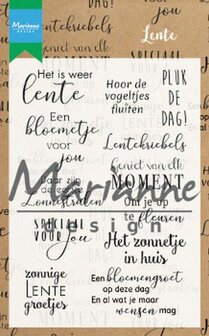 Marianne
DESIGN
Lente
Het is weer
lente
Hoor de
vogeltjes
fluiten
PLUK
DE
DAG!
Een
bloemetje
voor
jou
Lentekriebels
Geniet van elk
MOMENT
Daar zijn
de
Zonnestralen
Marianne
design
SPECIAAL
VOOR
Jou
Om je op
te fleuren
Het zonnetje
in huis
zonnige
LENTE
groetjes
Een bloemengroet
op deze dag
En al wat je maar
wensen mag